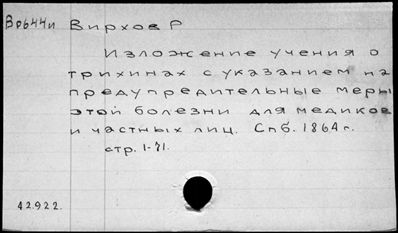 Вр644и Вирхов Р
Изложение учения о
трихинах с указанием на
предупредительные меры
этой болезни для медиков
и частных лиц. Спб. 1864 г.
стр. 1-71.
42.9.22.